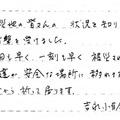 災地の皆さんの 状況を知り
衝撃を受けました。
日も早く、一刻も早く 被災され
達が、安全な場所に 移れます
から祈って居ります。
吉永小百合